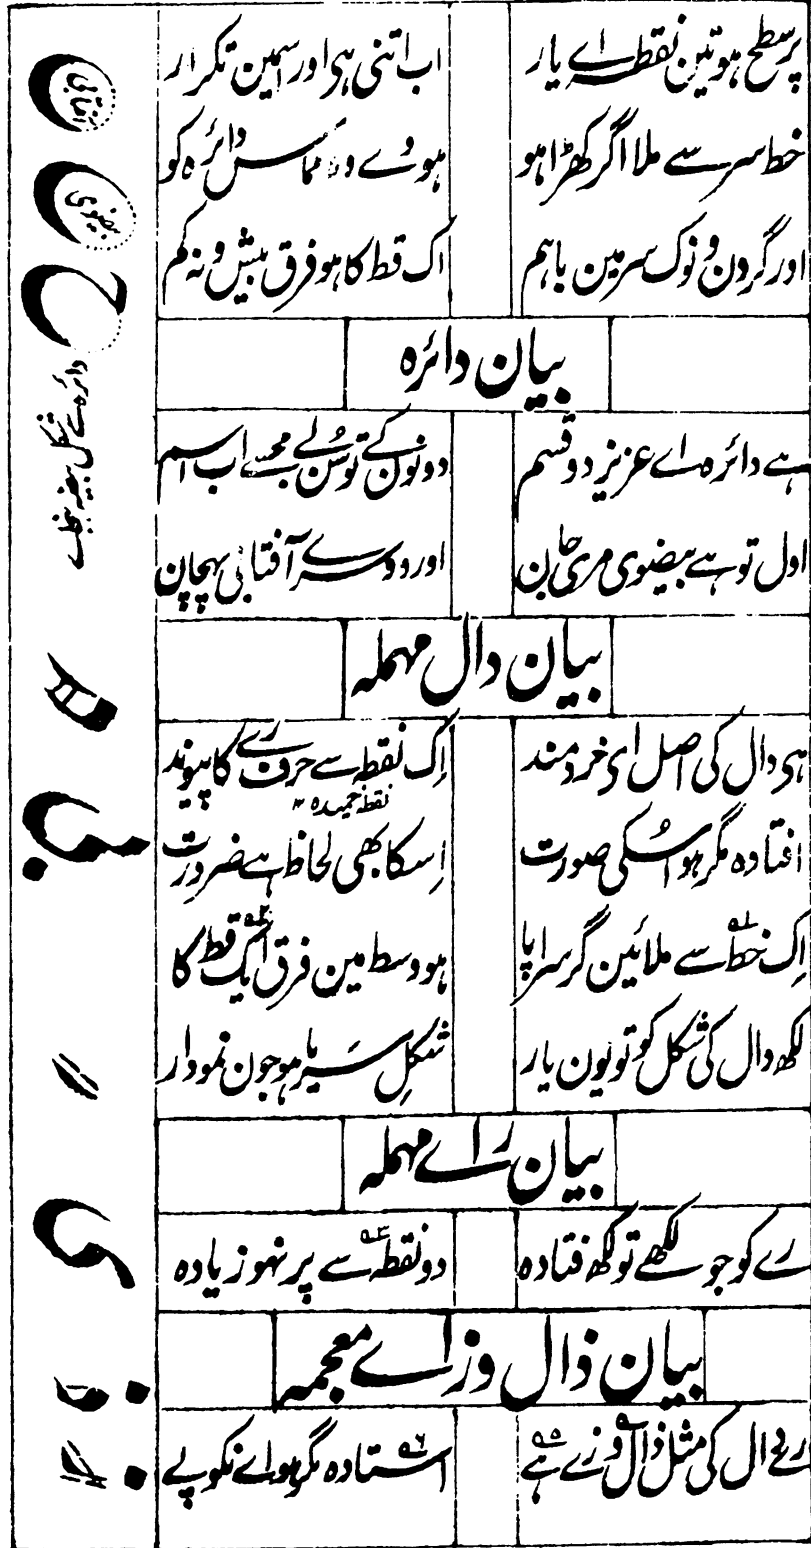 پر سطح ہو تین نقطہ اے یار اب اتنی ہی اور اسمین تکرار
خط سر سے ملا اگر کھڑا ہو ہووے وہ مماس دائرہ کو
اور گردن و نوک سرمین باہم اک قط کا ہو فرق بیش و نہ کم
بیان دائرہ
ہے دائرہ اے عزیز دو قسم دونون کے تو سُن لے مجھسے اب اسم
اول تو ہے بیضوی مری جان اور دوسرے آفتابی پہچان
بیان دال مہملہ
ہی دال کی اصل ای خردمند اِک نقطہ سے حرف رے کا پیوند
نقطہ خمیدہ ۱۲
افتادہ مگر ہو اُسکی صورت اِسکا بھی لحاظ ہے ضرورت
اِک خط سے ملائین گر سراپا ہو وسط مین فرق ایک قط کا
لکھ دال کی شکل کو تو یون یار شکلِ سَرِ یا ہو جون نمودار
بیان راے مہملہ
رے کو جو لکھے تو لکھ فتادہ دو نقطہ سے پر نہو زیادہ
بیان ذال وزاے معجمہ
رے دال کی مثل ذال و زے ہے استادہ مگر ہو اے نکو پے
آفتابی
بیضوی
دائرہ سے شکل بیضہ بنجاے